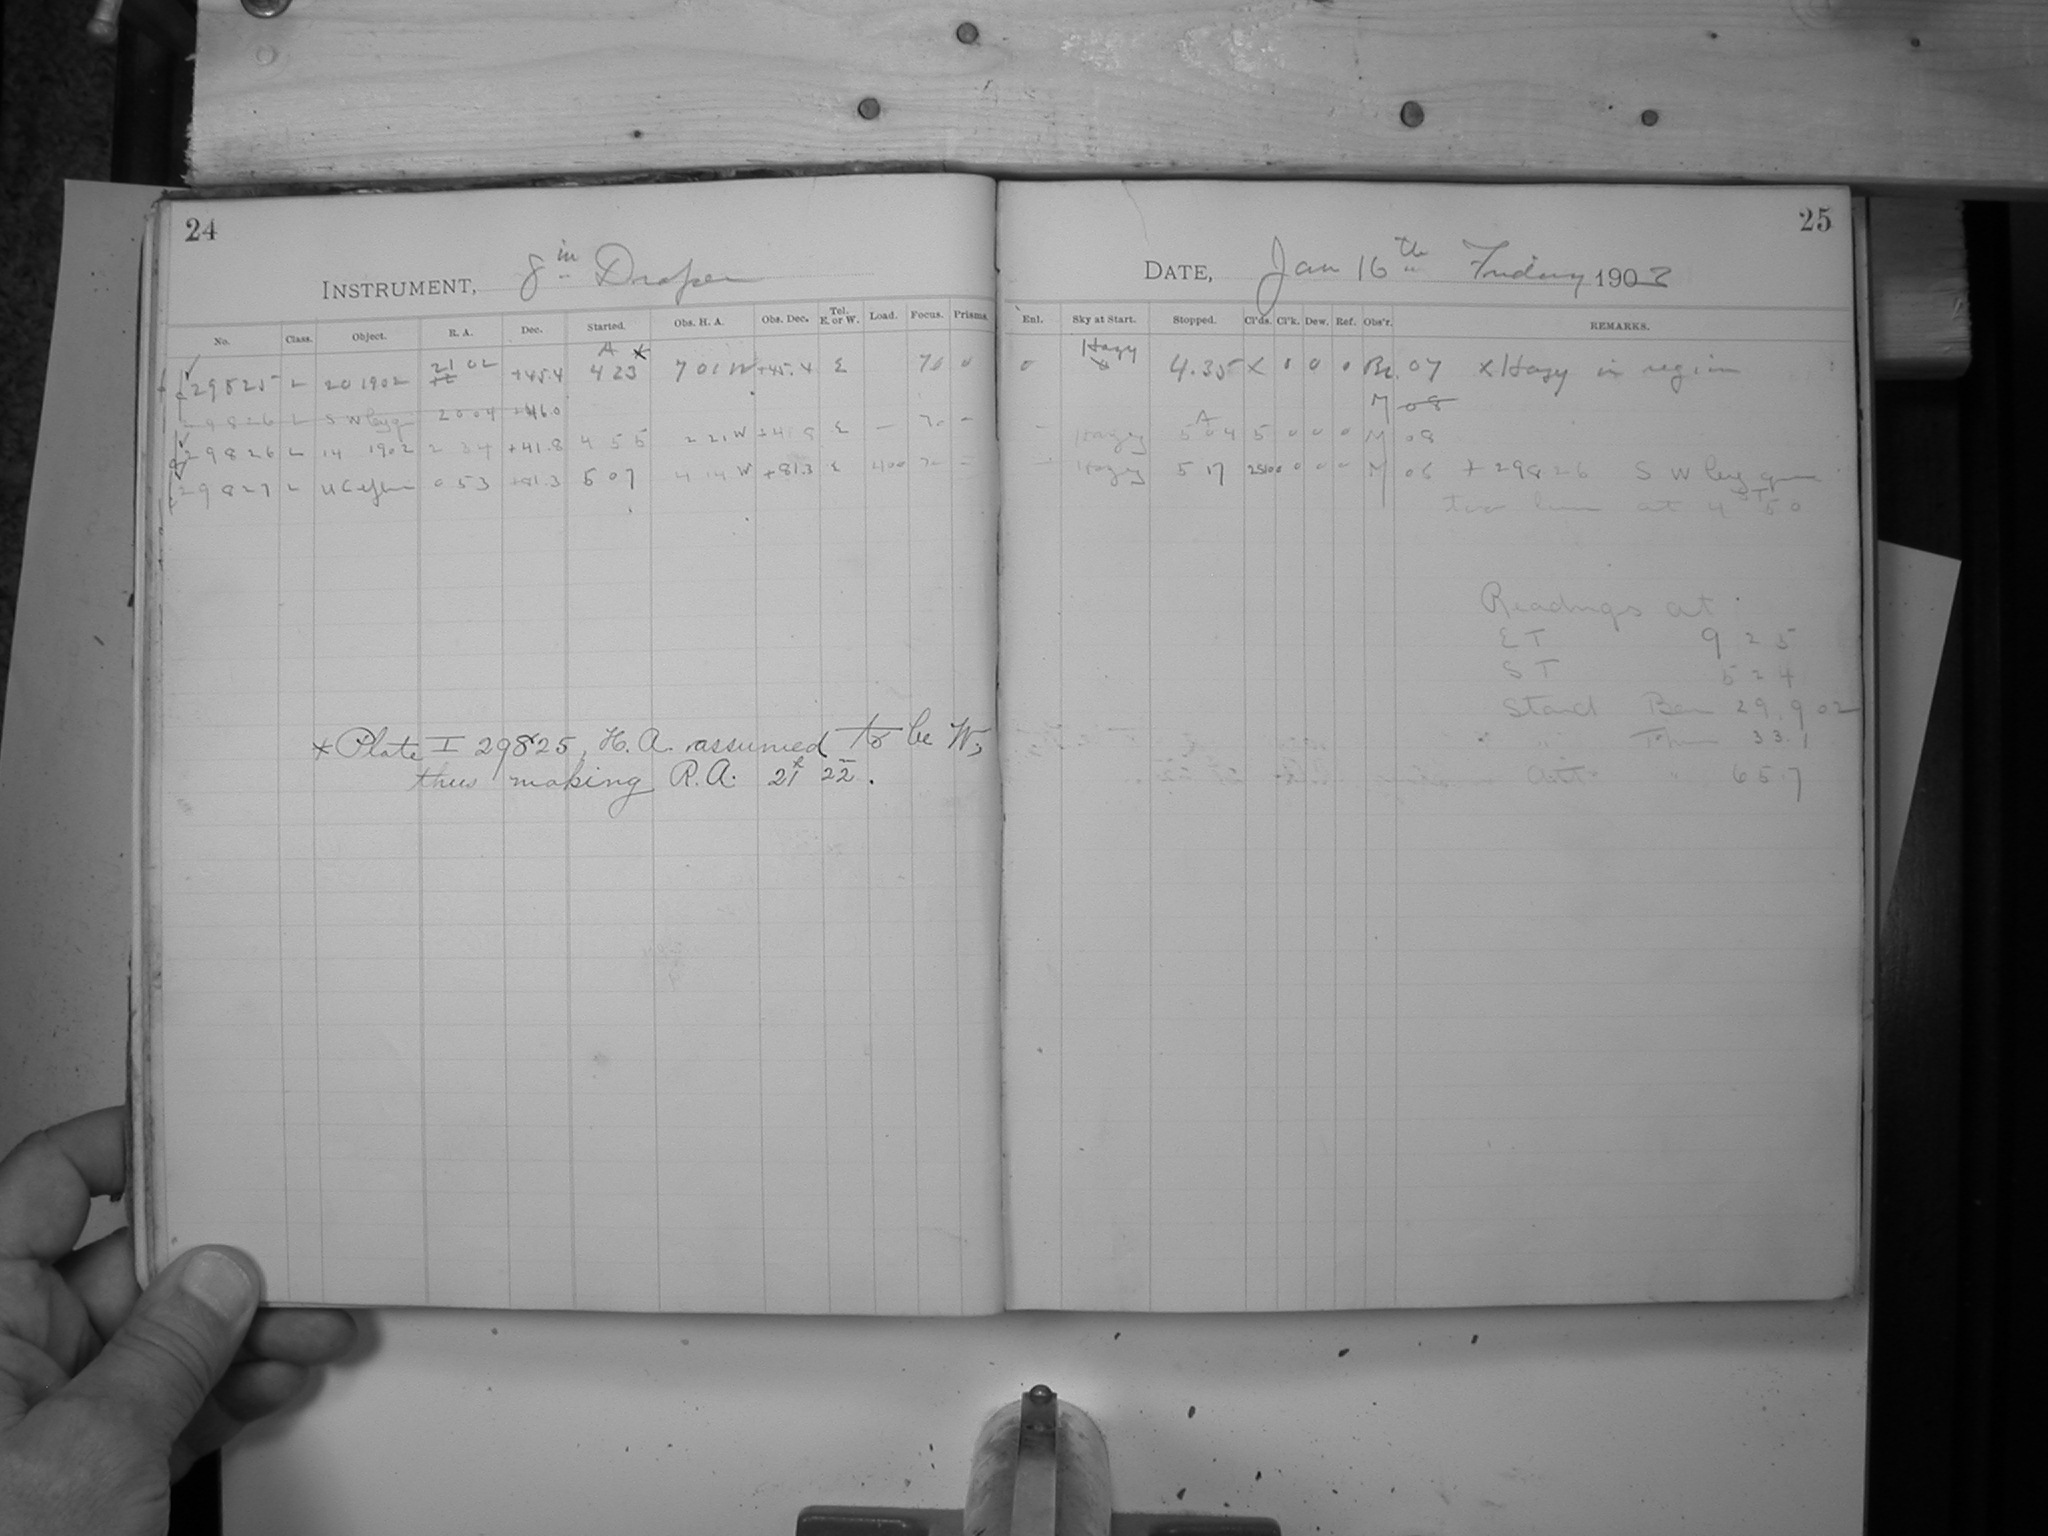 24
INSTRUMENT, 8 in Draper
No. Class. Object. R. A. Dec. Started. Obs. H. A. Obs. Dec. Tel. E. or W. Load. Focus. Prisms.
A *
29825 L 20 1902 21 02 +45.4 4 23 7 01 W +45.4 E 70 0
29826 L S W 20 04 +46.0
29826 L 14 1902 2 34 +41.8 4 55 2 21 W E - 70 -
29827 L U Cephei 0 53 +81.3 5 07 4 14 W +81.3 E 400 70 -
* Plate I 29825, H. A. assumed to be W,
thus making R. A. 21h 22m.
25
DATE, Jan 16th Friday 1903
Enl. Sky at Start. Stopped. Cl'ds. Cl'k. Dew. Ref. Obs'r. REMARKS.
0 Hazy x 4.35 X 0 0 0 07 x Hazy in region
M 08
- Hazy A 5 04 5 0 0 0 M 08
- Hazy 5 17 0 0 0 M 06 + 29826 S W
too low at 4 50
Readings at
E T 9 25
S T 5 24
Stand Bar 29.902
" " Ther 33.1
Att " 65.7